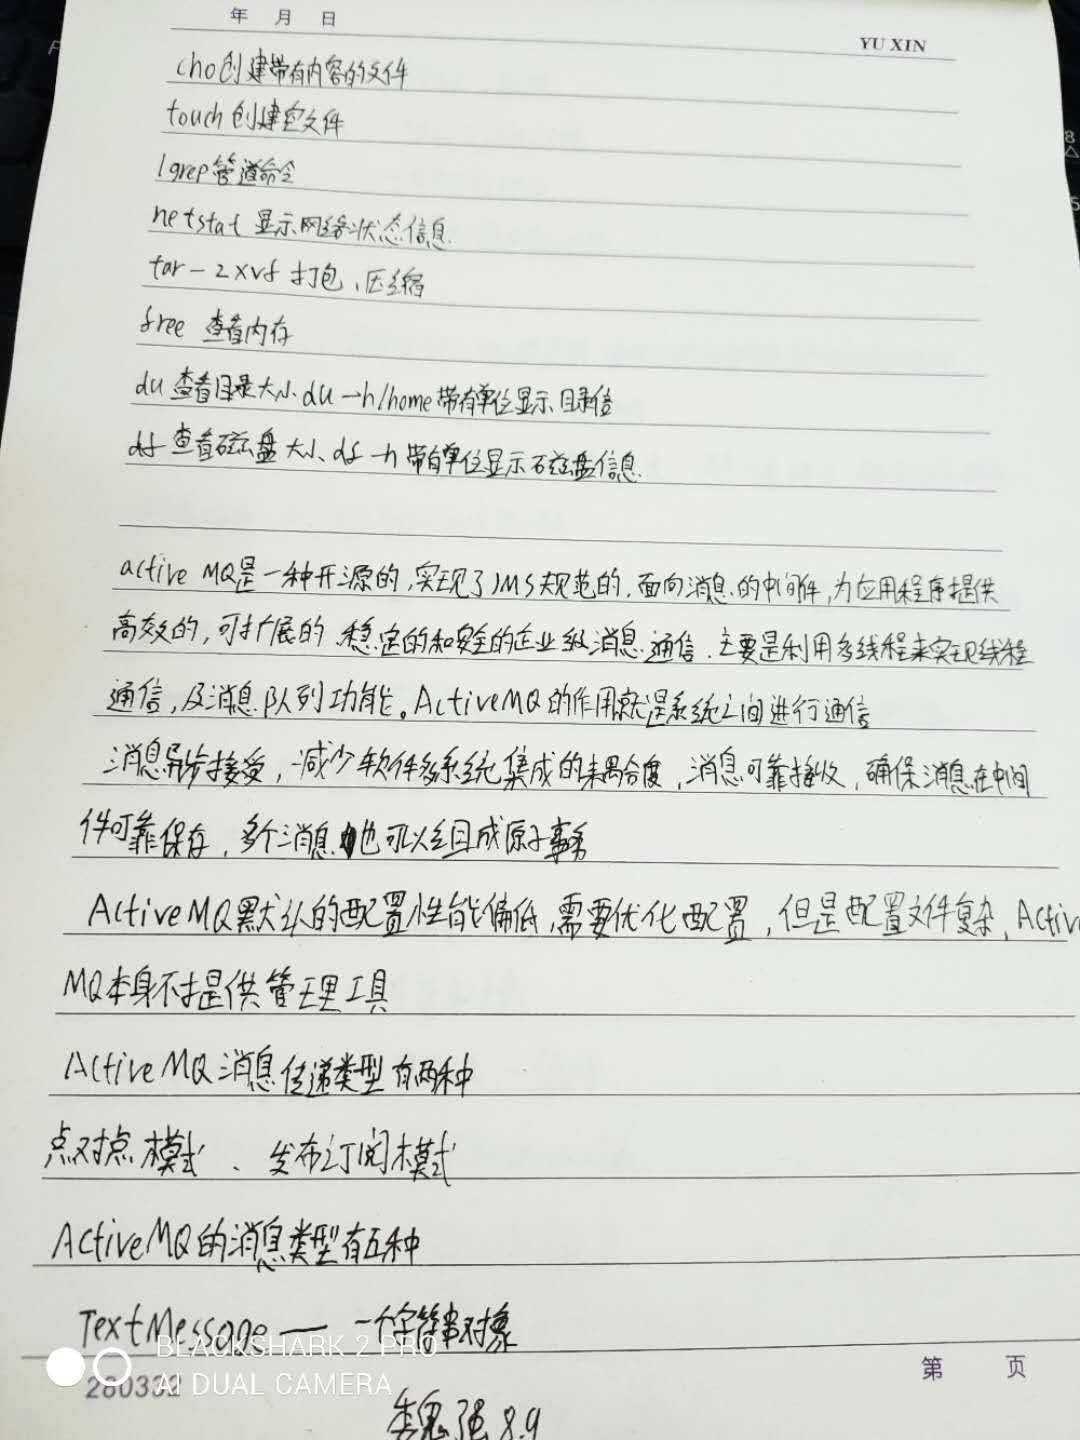 年 月 日
YU XIN
cho创建带有内容的文件
touch 创建空文件
|grep管道命令
netstat 显示网络状态信息
tar -zxvf 打包、压缩
free 查看内存
du 查看目录大小 du -h/home 带有单位显示目录信
df 查看磁盘大小 df -h 带有单位显示磁盘信息
active MQ是一种开源的,实现了JMS规范的,面向消息的中间件,为应用程序提供
高效的,可扩展的 稳定的和安全的企业级消息通信.主要是利用多线程来实现线程
通信,及消息队列功能。ActiveMQ的作用就是系统之间进行通信
消息异步接受,减少软件多系统集成的耦合度,消息可靠接收,确保消息在中间
件可靠保存,多个消息也可以组成原子事务
ActiveMQ默认的配置性能偏低,需要优化配置,但是配置文件复杂,Active
MQ本身不提供管理工具
ActiveMQ消息传递类型有两种
点对点模式、发布订阅模式
ActiveMQ的消息类型有五种
TextMessage— 一个字符串对象
BLACKSHARK 2 PRO
AI DUAL CAMERA
280332
第 页
魏强 8.9